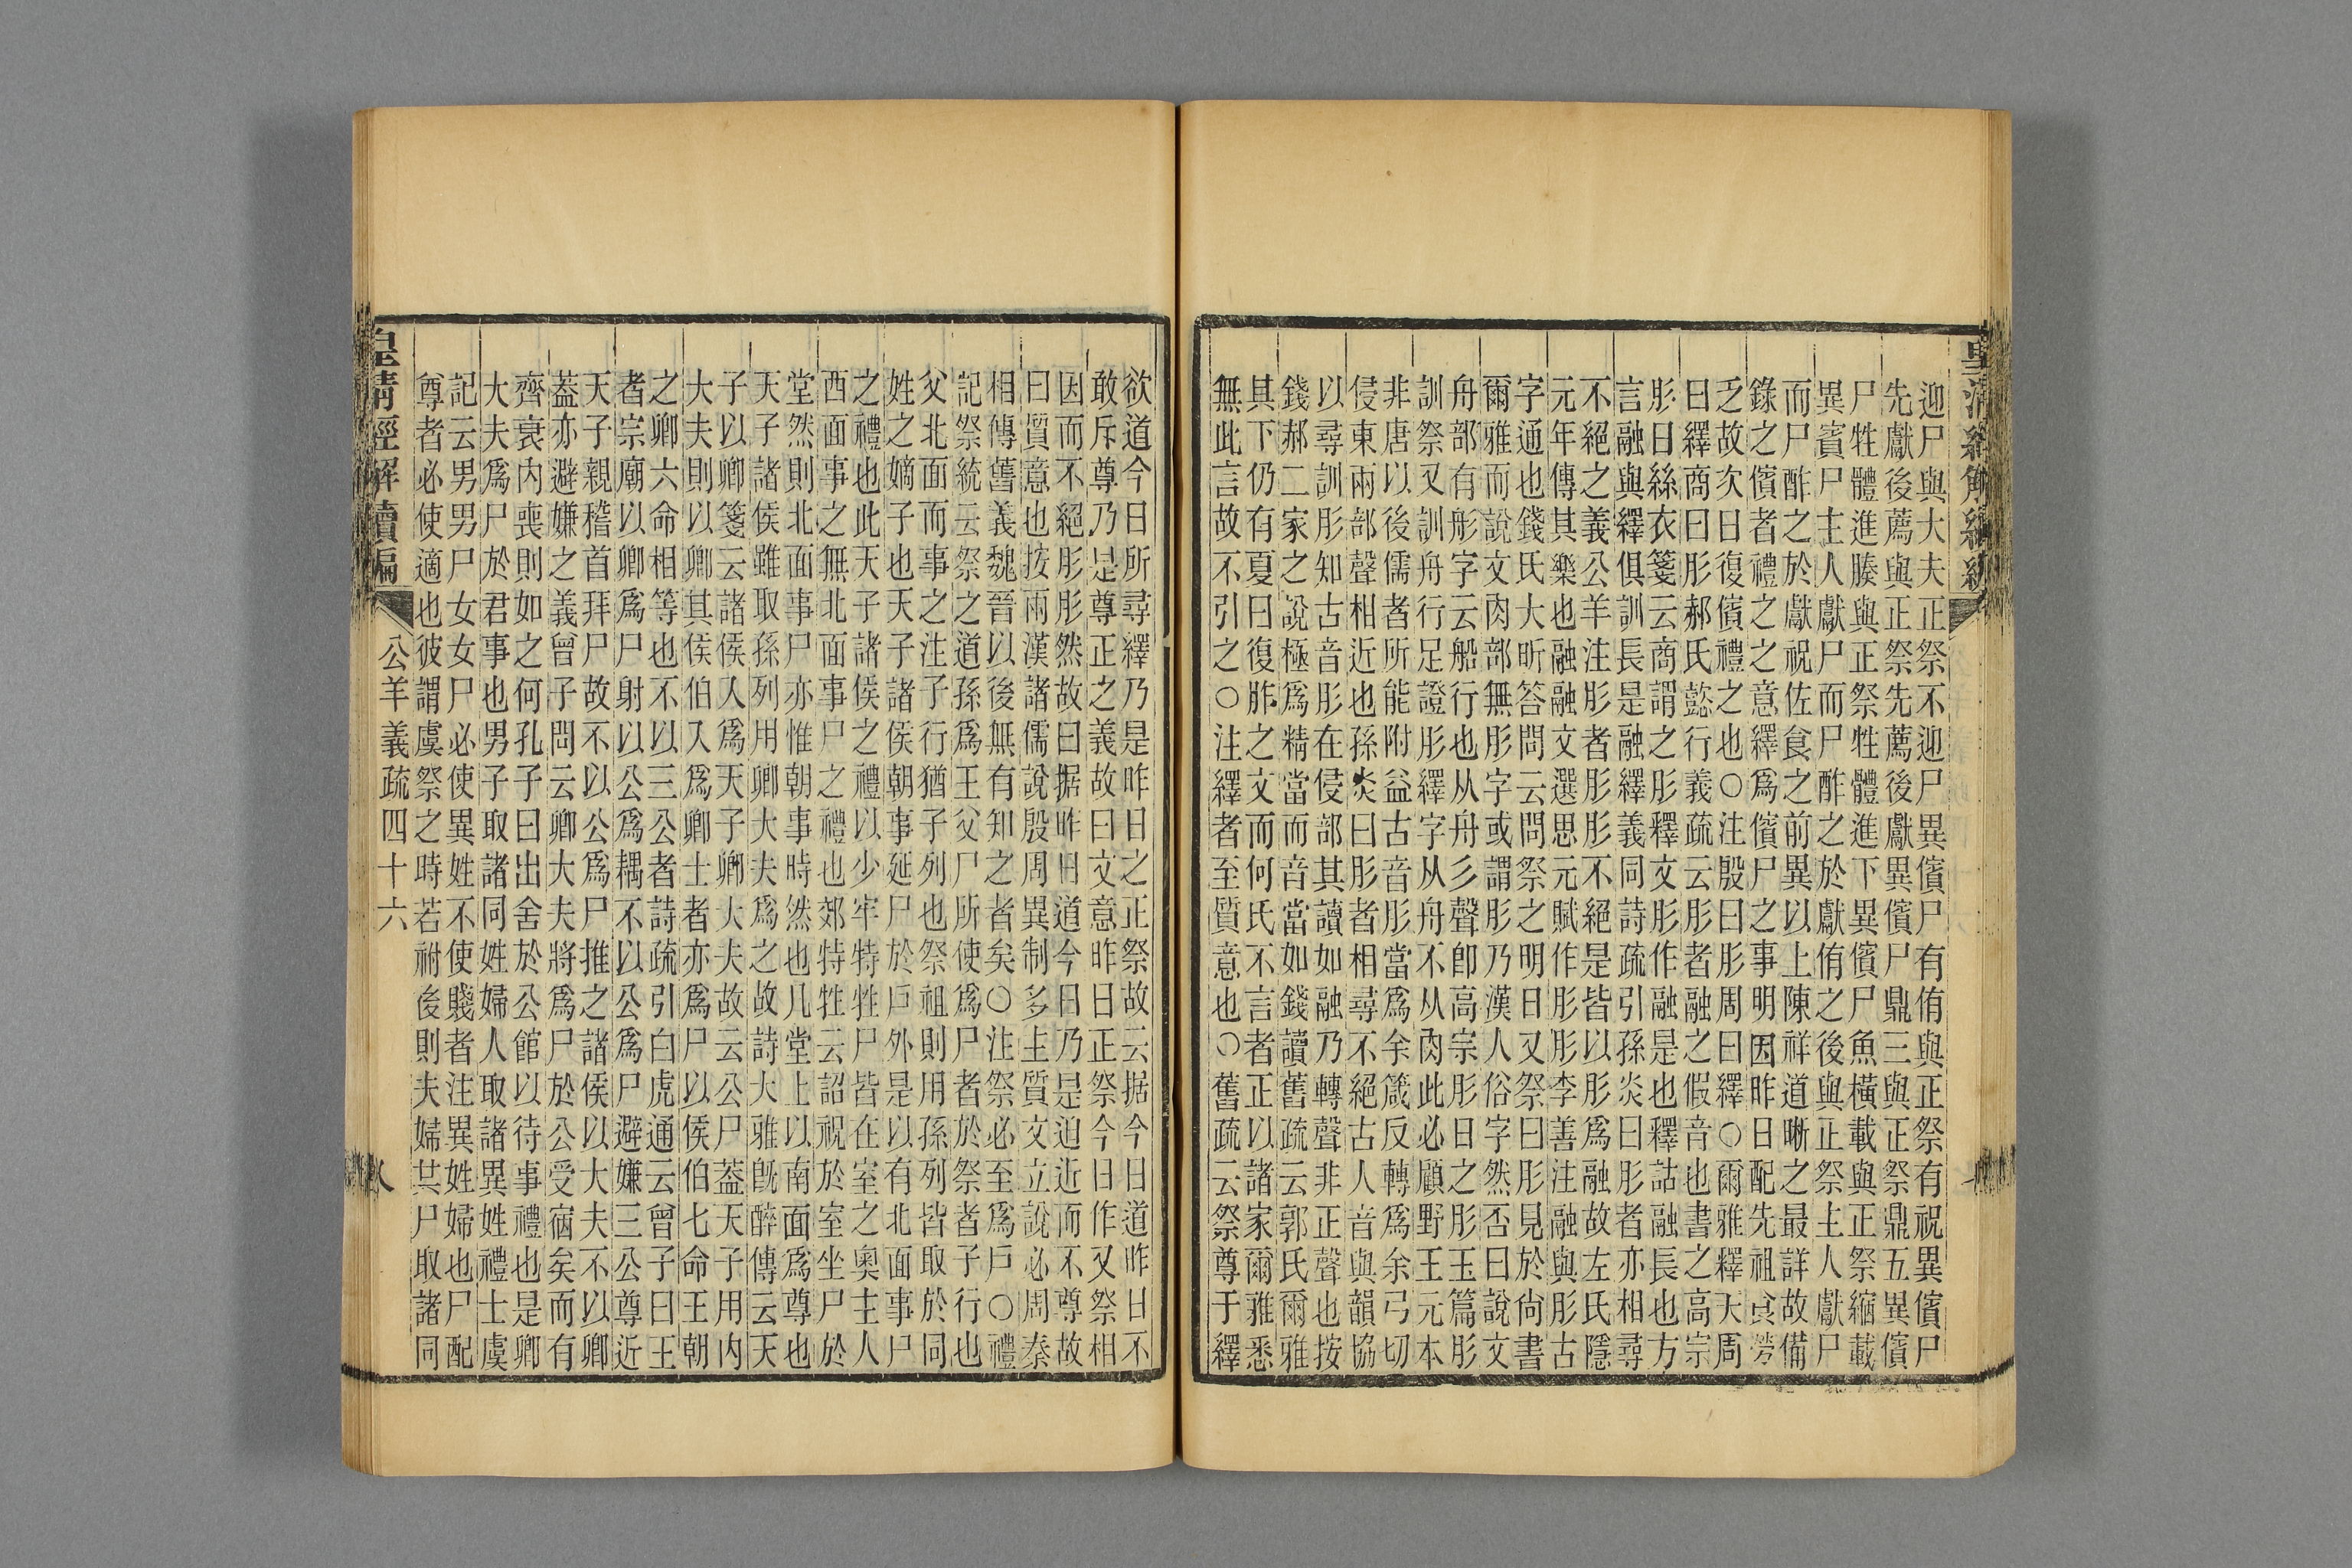 迎尸與大夫正祭不迎尸異儐尸有侑與正祭有祝異儐尸
先獻後薦與正祭先薦後獻異儐尸鼎三與正祭鼎五異儐
尸牲體進腠與正祭牲體進下異儐尸魚橫載與正祭縮載
異賓尸主人獻尸而尸酢之於獻侑之後與正祭主人獻尸
而尸酢之於獻祝佐食之前異以上陳祥道晰之最詳故備
錄之儐者禮之之意繹為儐尸之事明因昨日配先祖食勞
乏故次日復儐禮之也○注殷曰肜周曰繹○爾雅釋天周
曰繹商曰肜郝氏懿行義疏云肜者融之假音也書之高宗
肜日絲衣箋云商謂之肜釋文肜作融是也釋詁融長也方
言融與繹俱訓長是融繹義同詩疏引孫炎曰肜者亦相尋
不絕之義公羊注肜者肜肜不絕是皆以肜為融故左氏隱
元年傳其樂也融融文選思元賦作肜肜李善注融與肜古
字通也錢氏大昕答問云問祭之明日又祭曰肜見於尚書
爾雅而說文肉部無肜字或謂肜乃漢人俗字然否曰說文
舟部有彤字云船行也从舟彡聲卽高宗肜日之肜玉篇肜
訓祭又訓舟行足證肜繹字从舟不从肉此必顧野王元本
非唐以後儒者所能附益古音肜當為余箴反轉為余弓切
侵東兩部聲相近也孫炎曰肜者相尋不絕古人音與韻協
以尋訓肜知古音肜在侵部其讀如融乃轉聲非正聲也按
錢郝二家之說極為精當而音當如錢讀舊疏云郭氏爾雅
其下仍有夏曰復胙之文而何氏不言者正以諸家爾雅悉
無此言故不引之○注繹者至質意也○舊疏云祭尊于繹
欲道今日所尋繹乃是昨日之正祭故云据今日道昨日不
敢斥尊乃是尊正之義故曰文意昨日正祭今日作又祭相
因而不絕肜肜然故曰据昨日道今日乃是迫近而不尊故
曰質意也按兩漢諸儒說殷周異制多主質文立說必周秦
相傳舊義魏晉以後無有知之者矣○注祭必至為戶○禮
記祭統云祭之道孫為王父尸所使為尸者於祭者子行也
父北面而事之注子行猶子列也祭祖則用孫列皆取於同
姓之嫡子也天子諸侯朝事延尸於戶外是以有北面事尸
之禮也此天子諸侯之禮以少牢特牲尸皆在室之奧主人
西面事之無北面事尸之禮也郊特牲云詔祝於室坐尸於
堂然則北面事尸亦惟朝事時然也凡堂上以南面為尊也
天子諸侯雖取孫列用卿大夫為之故詩大雅旣醉傳云天
子以卿箋云諸侯入為天子卿大夫故云公尸葢天子用內
大夫則以卿其侯伯入為卿士者亦為尸以侯伯七命王朝
之卿六命相等也不以三公者詩疏引白虎通云曾子曰王
者宗廟以卿為尸射以公為耦不以公為尸避嫌三公尊近
天子親稽首拜尸故不以公為尸推之諸侯以大夫不以卿
葢亦避嫌之義曾子問云卿大夫將為尸於公受宿矣而有
齊衰內喪則如之何孔子曰出舍於公館以待事禮也是卿
大夫為尸於君事也男子取諸同姓婦人取諸異姓禮士虞
記云男男尸女女尸必使異姓不使賤者注異姓婦也尸配
尊者必使適也彼謂虞祭之時若祔後則夫婦共尸取諸同
皇淸經解續編
公羊義疏四十六